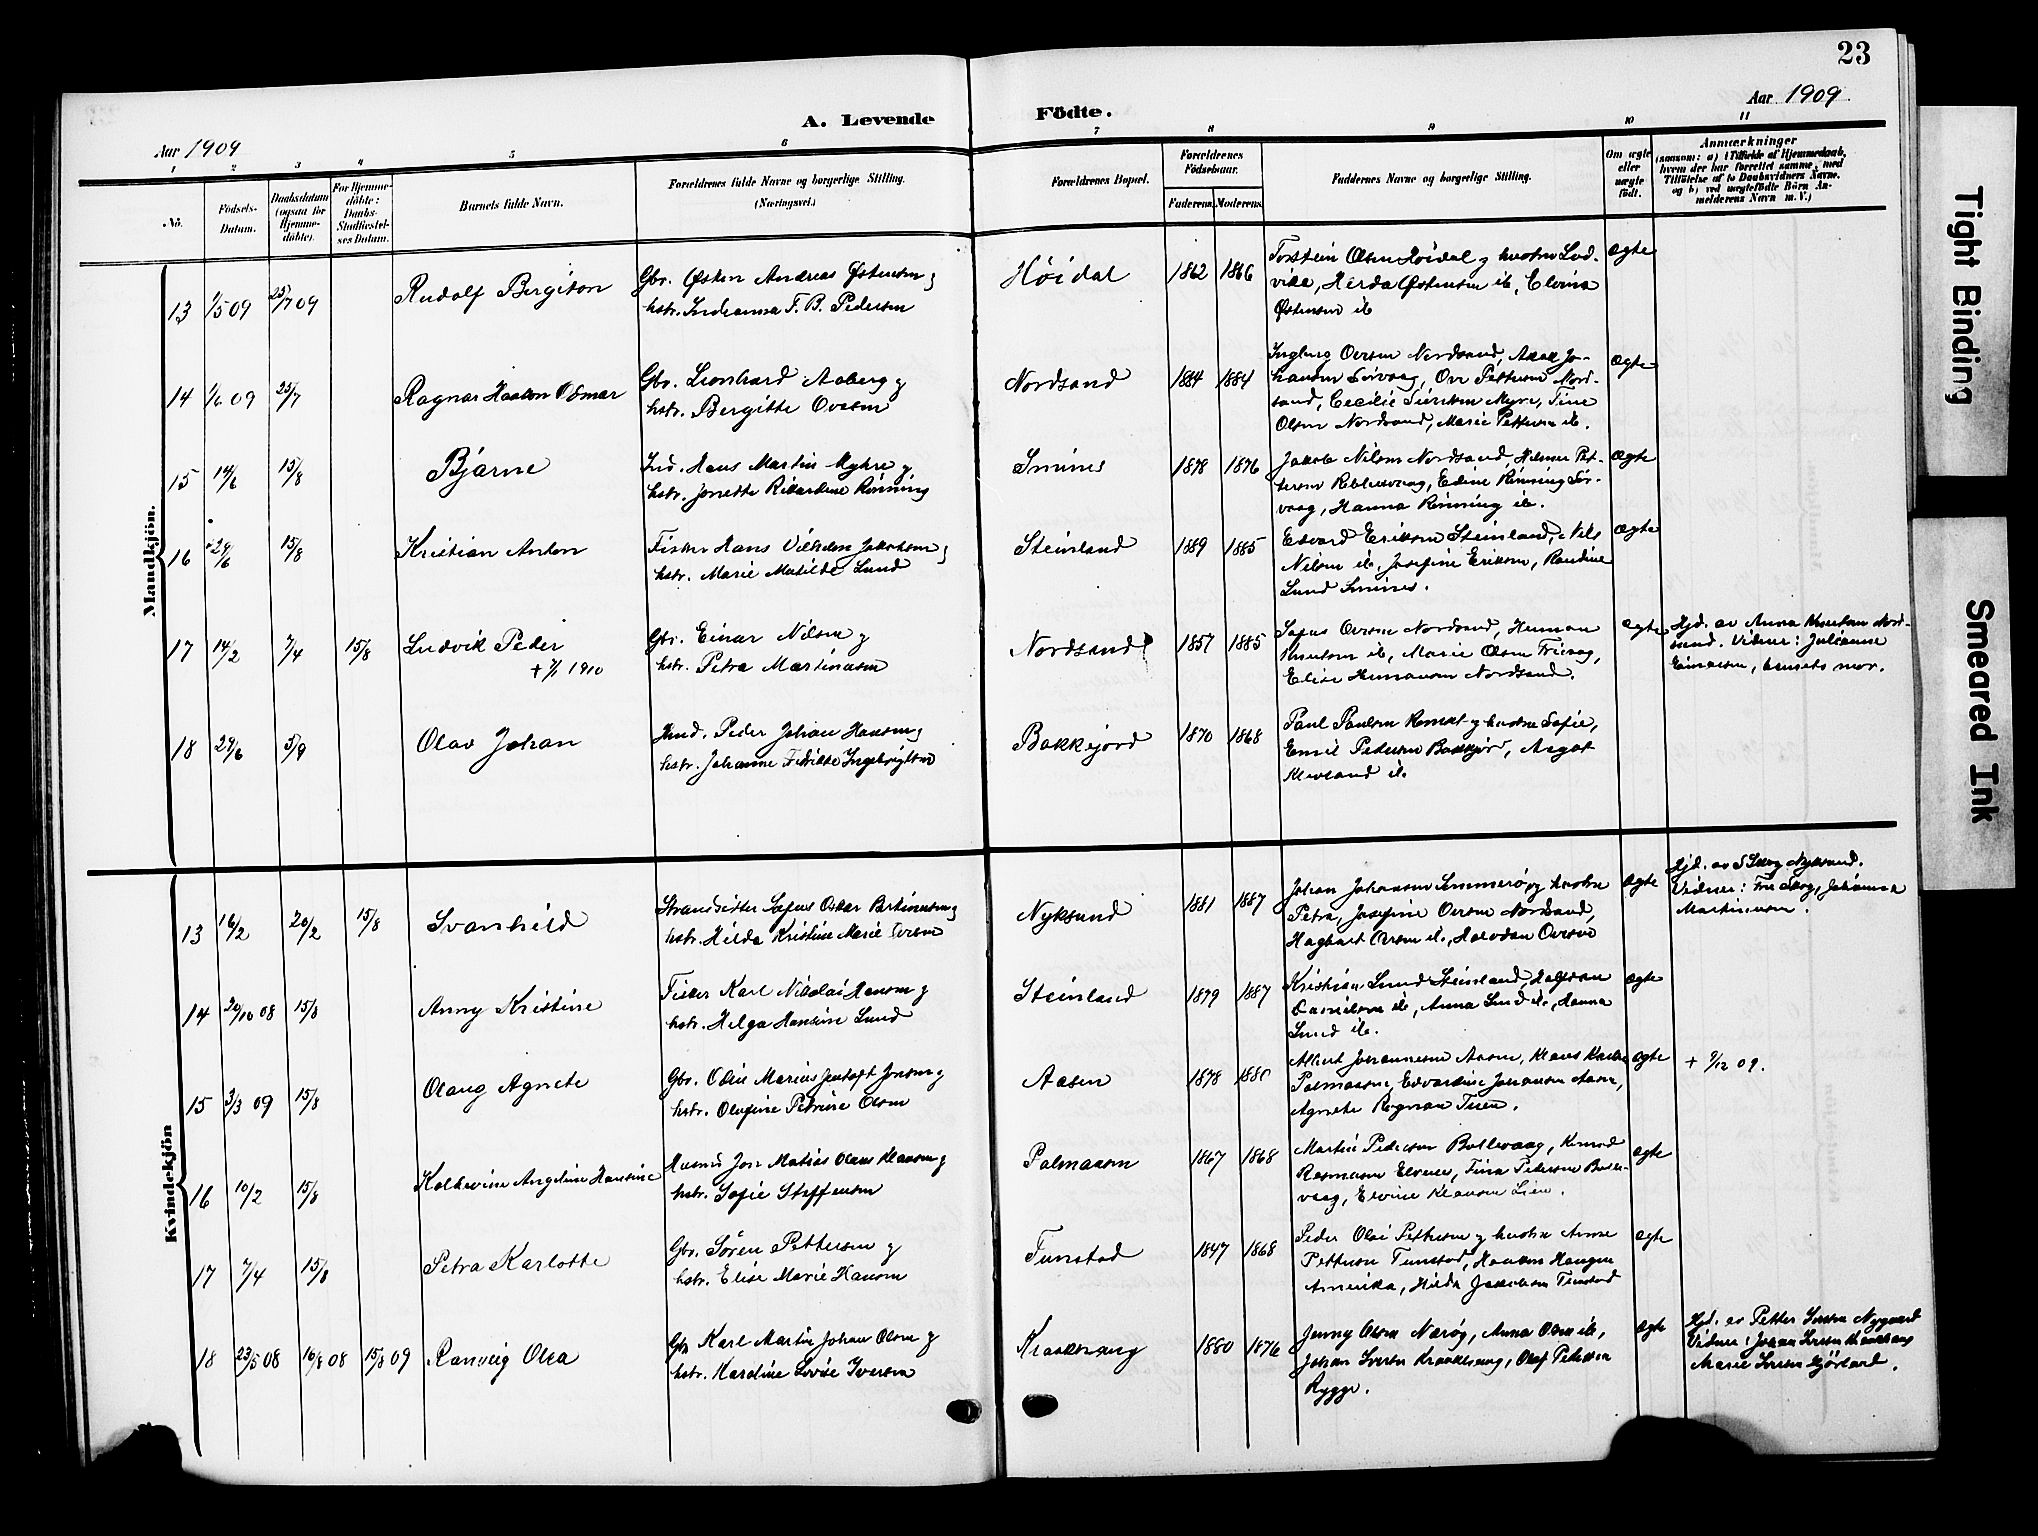 23
Aar 1909
A. Levende Födte.
Aar 1909
1 2 3 4 5 6 7 8 9 10 11
No.
Födsels-Datum.
Daabsdatum (ogsaa for Hjemme-döbte).
For Hjemme-döbte: Daabs-Stadfæstel-ses Datum.
Barnets fulde Navn.
Forældrenes fulde Navne og borgerlige Stilling. (Næringsvei.)
Forældrenes Bopæl.
Forældrenes Födselsaar.
Faderens. Moderens.
Faddernes Navne og borgerlige Stilling.
Om ægte eller uægte födt.
Anmærkninger
(saasom: a) i Tilfælde af Hjemmedaab, hvem der har forrettet samme, med Tilföielse af to Daabsvidners Navne, og b) ved uægtefödte Börn An-melderens Navn m. V.)
Mandkjön.
13 1/5 09 25/7 09 Rudolf Bergiton
Gbr. Østen Andreas Østensen og
hstr. Indianna T. B. Pedersen
Høidal 1862 1866
Torstein Olsen Høidal og hustru Lud-
vikke, Herda Østensen ib, Elvina
Østensen ib
ægte
14 1/6 09 25/7 Ragnar Haakon Odmar
Gbr. Leonhard Aaberg og
hstr. Bergitte Oversen
Nordsand 1884 1884
Ingborg Oversen Nordsand,
hansen Sørvaag, Ove Pettersen Nord-
sand, Cecilie Myre, Tine
Olsen Nordsand, Marie Pettersen ib.
ægte
15 14/6 15/8 Bjarne
Ind. Hans Martin Myhre og
hstr. Jonette Rikardine Rönning
Smines 1878 1876
Jakob Nilsen Nordsand, Hilmar Pet-
tersen, Edine Rönning Sør-
vaag, Hanna Rönning ib.
ægte
16 29/6 15/8 Kristian Anton
Fisker Hans Vilhelm Jakobsen og
hstr. Marie Matilde Lund
Steinland 1889 1885
Edvard Eriksen Steinland, Nils
Nilsen ib, Josefine Eriksen, Randine
Lund Smines.
ægte
17 14/2 7/4 15/8 Ludvik Peder
+ 7/1 1910
Gbr. Einar Nilsen og
hstr. Petra Martinusen
Nordsand 1857 1885
Sofus Oversen Nordsand, Herman
Knutsen ib, Marie Olsen Frivaag,
Elise Hermansen Nordsand.
ægte
Hjd. av Anna Knutsen Nord-
sand. Vidner: Julianne
Einarsen, barnets mor.
18 29/6 5/9 Olav Johan
Ind. Peder Johan Hansen og
hstr. Johanne Fedrikke Ingebrigtsen
Bakkejord 1870 1868
Paul Paulsen og hustru Sofie,
Emil Pedersen Bakkejord, Aagot
Klevland ib.
Kvindekjön
13 16/2 20/2 15/8 Svanhild
Strandsitter Sofus Oskar Bertinusen og
hstr. Hilda Kristine Marie Iversen
Nyksund 1881 1887
Johan Johansen Sommerø og hustru
Petra, Josefine Oversen Nordsand,
Hagbart Oversen ib., Halvdan Oversen
ægte
Hjd. av S Skog Nyksund.
Vidner: Fru Skog, Johanna
Martinusen.
14 20/10 08 15/8 Anny Kristine
Fisker Karl Nikolai Hansen og
hstr. Helga Hansine Lund
Steinland 1879 1887
Kristian Lund Steinland, Halfdan
Danielsen ib, Anna Lund ib, Hanna
Lund ib.
ægte
15 3/3 09 15/8 Olaug Agnete
Gbr. Odin Marius Jentoft Jonsen og
hstr. Olufine Petrine Olsen
Aasen 1878 1880
Albert Johannesen Aasen, Klaus
Palmaasen, Edvardine Johansen Aasen,
Agnete Rognan Tuen.
ægte
+ 9/12 09.
16 10/2 15/8 Kolbevine Angeline Hansine
Husmd Jon Matias Olaus Klausen og
hstr. Sofie Steffensen
Palmaasen 1867 1868
Martin Pedersen Bollevaag, Konrad
Rasmusen Elvene, Fina Pedersen Bolle-
vaag, Elvine Klausen Lien.
ægte
17 7/4 15/8 Petra Karlotte
Gbr. Søren Pettersen og
hstr. Elise Marie Hansen
Tunstad 1847 1868
Peder Olai Pettersen og hustru Anne
Pettersen Tunstad, Haakon Haugen
Amerika, Hilda Jakobsen Tunstad
ægte
18 23/5 08 16/8 08 15/8 09 Ranveig Olea
Gbr Karl Martin Johan Olsen og
hstr. Karoline Lovise Iversen
Kraaksnaug 1880 1876
Jenny Olsen Nærøg, Anna Olsen ib,
Johan Iversen Kraaksnaug, Olaf Petersen
Rygge.
ægte
Hjd. av Petter Iversen Nygaard
Vidner: Johan Iversen
Marie Iversen
Tight Binding
Smeared Ink